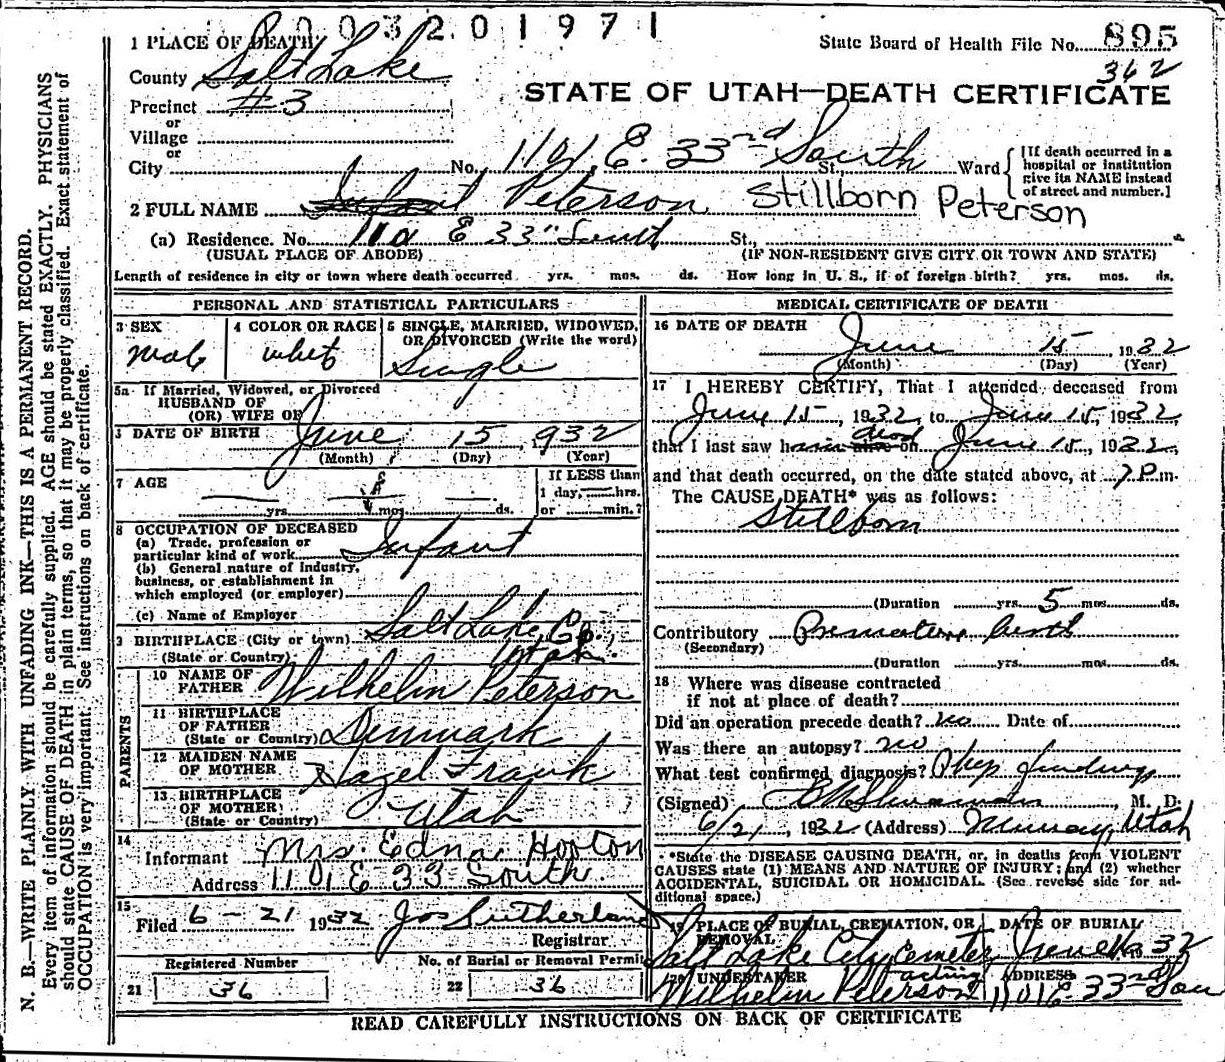 0 0 3 2 0 1 9 7 1
1 PLACE OF DEATH
State Board of Health File No. 895
County Salt Lake
362
Precinct #3
STATE OF UTAH—DEATH CERTIFICATE
or
Village
or
City No. 1101 E. 33rd South St., Ward
[If death occurred in a hospital or institution give its NAME instead of street and number.]
2 FULL NAME Infant Peterson Stillborn Peterson
(a) Residence. No. 110 E 33" South St.,
(USUAL PLACE OF ABODE) (IF NON-RESIDENT GIVE CITY OR TOWN AND STATE)
Length of residence in city or town where death occurred yrs. mos. ds. How long in U. S., if of foreign birth? yrs. mos. ds.
PERSONAL AND STATISTICAL PARTICULARS
3 SEX
male
4 COLOR OR RACE
white
5 SINGLE, MARRIED, WIDOWED, OR DIVORCED (Write the word)
Single
5a If Married, Widowed, or Divorced
HUSBAND OF
(OR) WIFE OF
DATE OF BIRTH June 15, 932
(Month) (Day) (Year)
7 AGE
yrs. mos. ds.
If LESS than
1 day, hrs.
or min.?
8 OCCUPATION OF DECEASED
(a) Trade, profession or
particular kind of work Infant
(b) General nature of industry,
business, or establishment in
which employed (or employer)
(c) Name of Employer
9 BIRTHPLACE (City or town) Salt Lake Co.
(State or Country) Utah.
PARENTS
10 NAME OF FATHER Wilhelm Peterson
11 BIRTHPLACE OF FATHER (State or Country) Denmark
12 MAIDEN NAME OF MOTHER Hazel Frank
13 BIRTHPLACE OF MOTHER (State or Country) Utah
14
Informant Mrs. Edna Hooton
Address 1101 E 33 South.
15
Filed 6-21 1932 Jos Sutherland
Registrar
Registered Number
21 36
No. of Burial or Removal Permit
22 36
MEDICAL CERTIFICATE OF DEATH
16 DATE OF DEATH
June 15, 1932
(Month) (Day) (Year)
17 I HEREBY CERTIFY, That I attended deceased from
June 15, 1932 to June 15, 1932
that I last saw him alive on dead June 15, 1932,
and that death occurred, on the date stated above, at 7 P.m.
The CAUSE DEATH* was as follows:
Stillborn
(Duration yrs. 5 mos. ds.
Contributory Premature birth
(Secondary)
(Duration yrs. mos. ds.
18 Where was disease contracted
if not at place of death?
Did an operation precede death? no Date of
Was there an autopsy? no
What test confirmed diagnosis? Phys findings
(Signed) M. D.
6/21, 1932 (Address) Murray, Utah
*State the DISEASE CAUSING DEATH, or, in deaths from VIOLENT
CAUSES state (1) MEANS AND NATURE OF INJURY; and (2) whether
ACCIDENTAL, SUICIDAL OR HOMICIDAL. (See reverse side for additional space.)
19 PLACE OF BURIAL, CREMATION, OR REMOVAL
Salt Lake City Cemetery
DATE OF BURIAL
June 32
20 UNDERTAKER
Wilhelm Peterson acting
ADDRESS
1101 E. 33rd Sou
READ CAREFULLY INSTRUCTIONS ON BACK OF CERTIFICATE
N. B.—WRITE PLAINLY WITH UNFADING INK—THIS IS A PERMANENT RECORD.
Every item of information should be carefully supplied. AGE should be stated EXACTLY. PHYSICIANS
should state CAUSE OF DEATH in plain terms, so that it may be properly classified. Exact statement of
OCCUPATION is very important. See instructions on back of certificate.